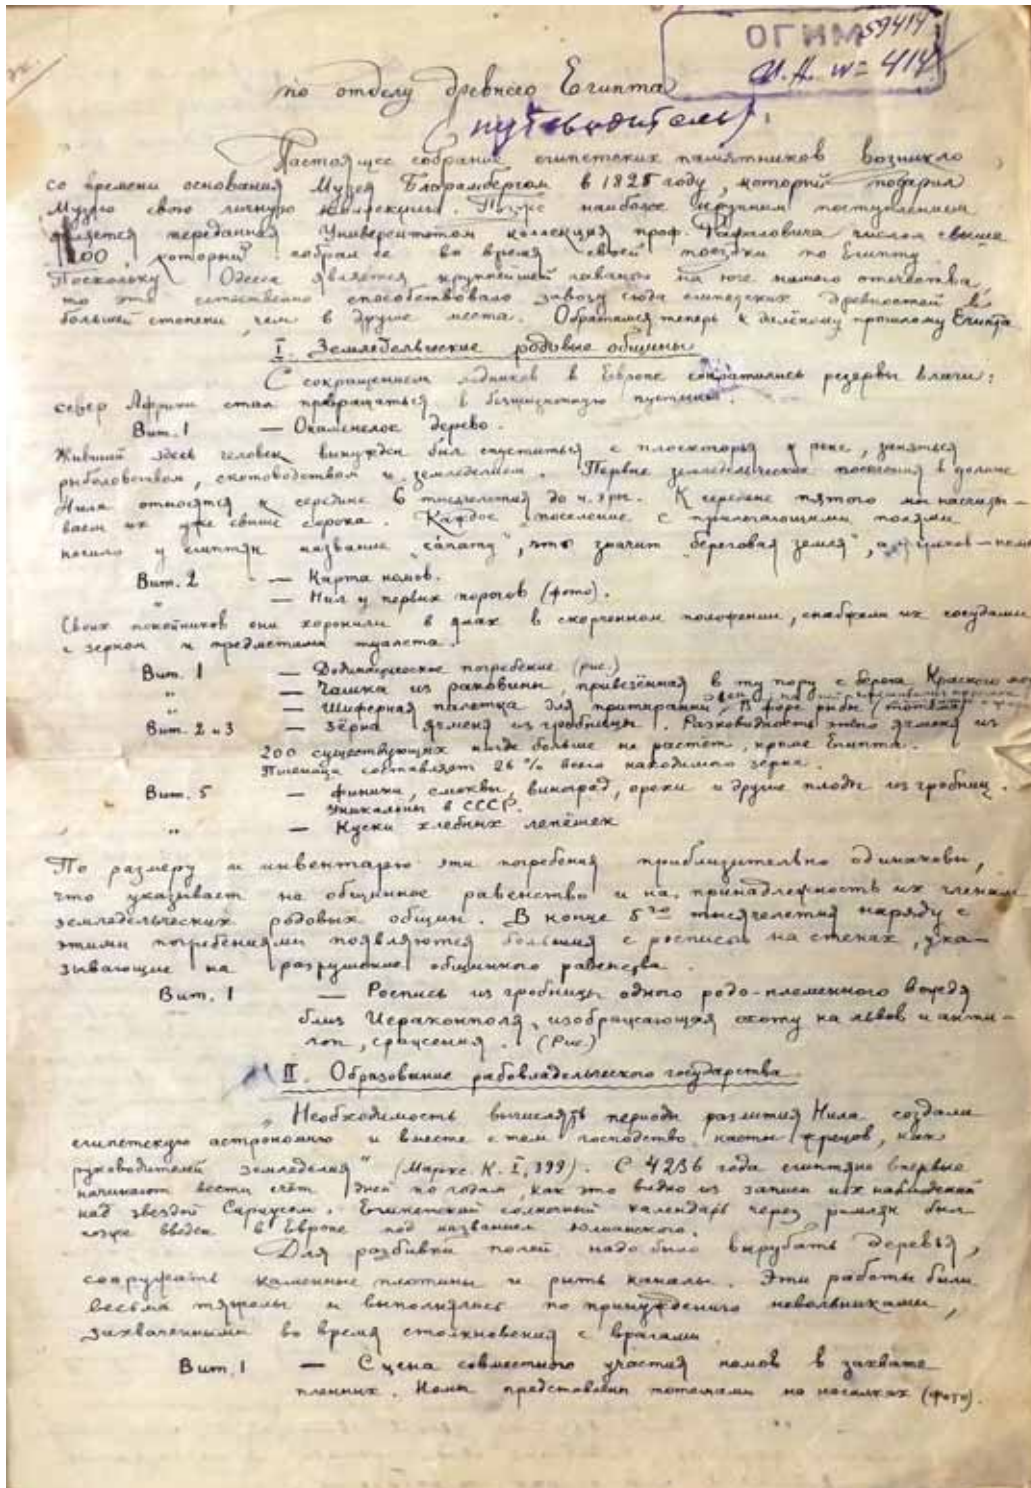 ОГИМ 59414
И. А. № 414
по отделу древнего Египта
(путеводитель).
Настоящее собрание египетских памятников возникло
со времени основания Музея Бларамбергом в 1825 году, который подарил
Музею свою личную коллекцию. Позже наиболее крупным поступлением
является переданная Университетом коллекция проф. Рафаловича числом свыше
100, который собрал ее во время своей поездки по Египту.
Поскольку Одесса является крупнейшей гаванью на юге нашего отечества,
то это естественно способствовало завозу сюда египетских древностей в
большей степени, чем в другие места. Обратимся теперь к далёкому прошлому Египта
I. Земледельческие родовые общины
С сокращением ледников в Европе сократились резервы влаги:
север Африки стал превращаться в безжизненную пустыню.
Вит. 1 — Окаменелое дерево.
Живший здесь человек вынужден был спуститься с плоскогорья к реке, заняться
рыболовством, скотоводством и земледелием. Первые земледельческие поселения в долине
Нила относятся к середине 6 тысячелетия до н. эры. К середине пятого мы насчиты-
ваем их уже свыше сорока. Каждое поселение с прилегающими полями
носило у египтян название „сапату", что значит „береговая земля", а у греков — ном
Вит. 2 — Карта номов.
" — Нил у первых порогов (фото).
Своих покойников они хоронили в ямах в скорченном положении, снабжали их сосудами
с зерном и предметами туалета.
Вит. 1 — Додинастическое погребение (рис.)
" — Чашка из раковины, привезённая в ту пору с берега Красного мор
" — Шиферная палетка для притираний, в форме рыбы (тотема)
Вит. 2 и 3 — Зёрна ячменя из гробницы. Разновидность этого ячменя из
200 существующих нигде больше не растёт, кроме Египта.
Пшеница составляет 26% всего находимого зерна.
Вит. 5 — Финики, смоквы, виноград, орехи и другие плоды из гробниц.
Уникальны в СССР.
" — Куски хлебных лепёшек
По размеру и инвентарю эти погребения приблизительно одинаковы,
что указывает на общинное равенство и на принадлежность их членам
земледельческих родовых общин. В конце 5го тысячелетия наряду с
этими погребениями появляются большия с росписью на стенах, ука-
зывающие на разрушение общинного равенства.
Вит. 1 — Роспись из гробницы одного родо-племенного вождя
близ Иераконполя, изображающая охоту на львов и анти-
лоп, сражения. (Рис.)
II. Образование рабовладельческого государства.
„Необходимость вычислять периоды разлития Нила создали
египетскую астрономию и вместе с тем господство касты жрецов, как
руководителей земледелия" (Маркс. К. I, 399). С 4236 года египтяне впервые
начинают вести счёт дней по годам, как это видно из записи их наблюдений
над звездой Сириусом. Египетский солнечный календарь через римлян был
позже введен в Европе под названием юлианского.
Для разбивки полей надо было вырубать деревья,
сооружать каменные плотины и рыть каналы. Эти работы были
весьма тяжелы и выполнялись по принуждению невольниками,
захваченными во время столкновения с врагами.
Вит. 1 — Сцена совместного участия номов в захвате
пленных. Номы представлены тотемами на носилках (фото).